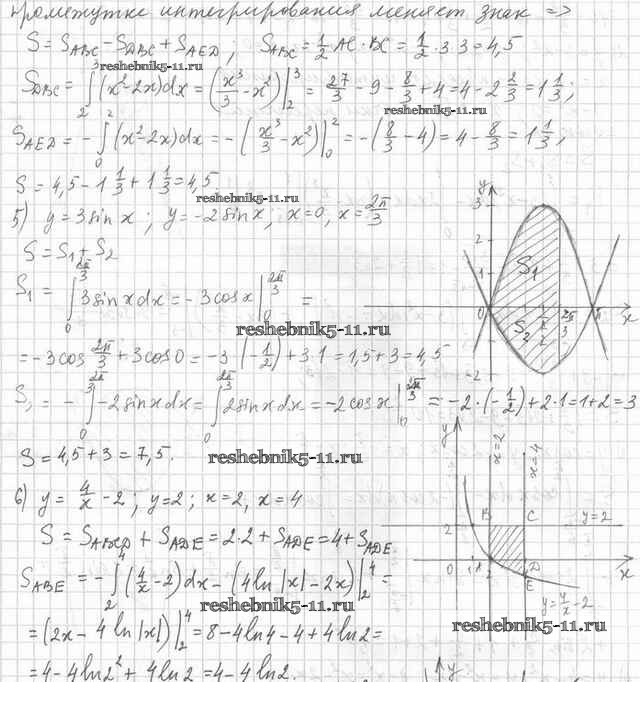 промежутке интегрирования меняет знак =>
S = S_ABC − S_DBC + S_AED ; S_ABC = 1/2 AC · BC = 1/2 · 3 · 3 = 4,5
S_DBC = ∫₂³ (x² − 2x)dx = (x³/3 − x²)|₂³ = 27/3 − 9 − 8/3 + 4 = 4 − 2 2/3 = 1 1/3 ;
reshebnik5-11.ru
reshebnik5-11.ru
S_AED = − ∫₀² (x² − 2x)dx = − (x³/3 − x²)|₀² = −(8/3 − 4) = 4 − 8/3 = 1 1/3 ,
S = 4,5 − 1 1/3 + 1 1/3 = 4,5
reshebnik5-11.ru
5) y = 3 sin x ; y = −2 sin x , x = 0, x = 2π/3
S = S₁ + S₂
S₁ = ∫₀^{2π/3} 3 sin x dx = −3 cos x |₀^{2π/3} =
reshebnik5-11.ru
= −3 cos 2π/3 + 3 cos 0 = −3 (−1/2) + 3 · 1 = 1,5 + 3 = 4,5
S₂ = − ∫₀^{2π/3} −2 sin x dx = ∫₀^{2π/3} 2 sin x dx = −2 cos x |₀^{2π/3} = −2 · (−1/2) + 2 · 1 = 1 + 2 = 3
S = 4,5 + 3 = 7,5.
reshebnik5-11.ru
6) y = 4/x − 2 ; y = 2 ; x = 2, x = 4
S = S_ABCD + S_ADE = 2 · 2 + S_ADE = 4 + S_ADE
S_ABE = − ∫₂⁴ (4/x − 2) dx − (4 ln |x| − 2x)|₂⁴ =
reshebnik5-11.ru
= (2x − 4 ln |x|)|₂⁴ = 8 − 4 ln 4 − 4 + 4 ln 2 =
= 4 − 4 ln 2² + 4 ln 2 = 4 − 4 ln 2.
y
3
2
1
S₁
0
S₂
π/2
2π/3
π
x
-2
y
x = 2
x = 4
B
C
y = 2
2
0
1
A
2
D
E
x
y = 4/x − 2
reshebnik5-11.ru
y